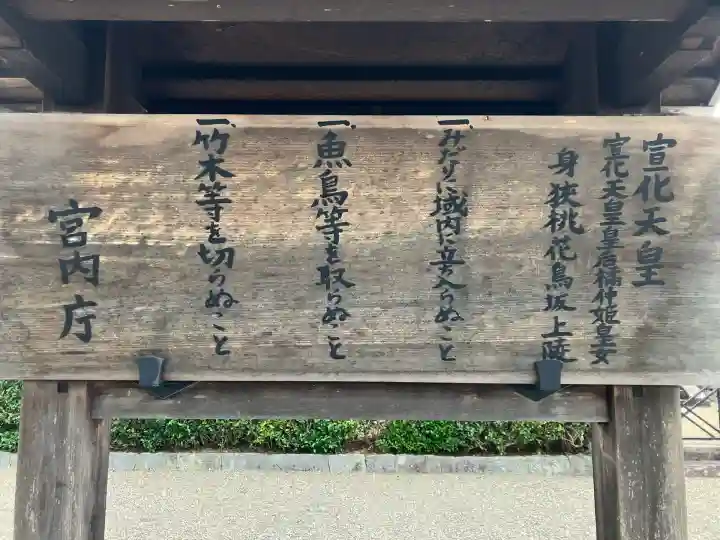 宣化天皇
宣化天皇皇后橘仲姫皇女
身狭桃花鳥坂上陵
一、みだりに域内に立入らぬこと
一、魚鳥等を取らぬこと
一、竹木等を切らぬこと
宮内庁